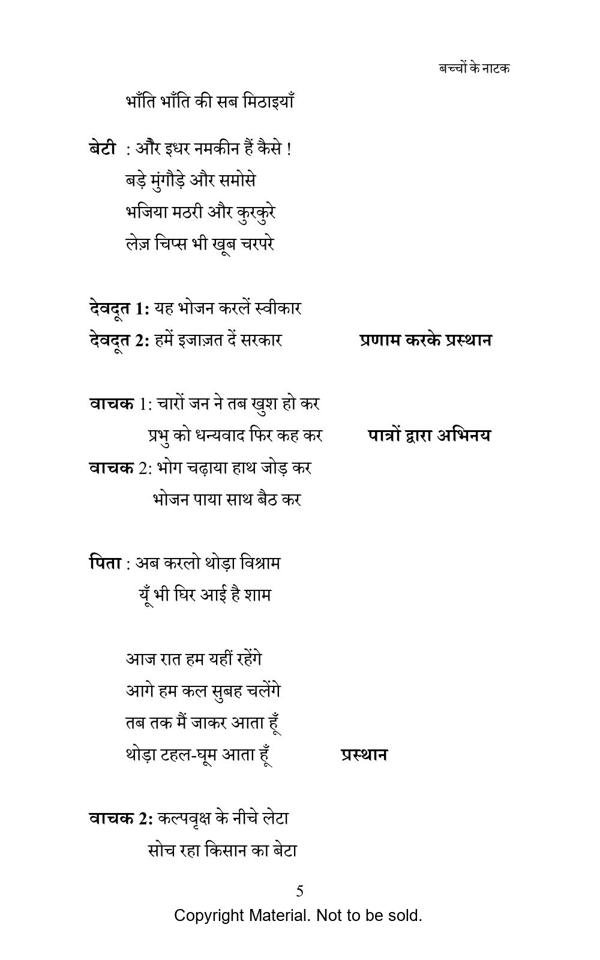 बच्चों के नाटक
भाँति भाँति की सब मिठाइयाँ
बेटी : और इधर नमकीन हैं कैसे !
बड़े मुंगौड़े और समोसे
भजिया मठरी और कुरकुरे
लेज़ चिप्स भी खूब चरपरे
देवदूत 1: यह भोजन करलें स्वीकार
देवदूत 2: हमें इजाज़त दें सरकार प्रणाम करके प्रस्थान
वाचक 1: चारों जन ने तब खुश हो कर
प्रभु को धन्यवाद फिर कह कर पात्रों द्वारा अभिनय
वाचक 2: भोग चढ़ाया हाथ जोड़ कर
भोजन पाया साथ बैठ कर
पिता : अब करलो थोड़ा विश्राम
यूँ भी घिर आई है शाम
आज रात हम यहीं रहेंगे
आगे हम कल सुबह चलेंगे
तब तक मैं जाकर आता हूँ
थोड़ा टहल-घूम आता हूँ प्रस्थान
वाचक 2: कल्पवृक्ष के नीचे लेटा
सोच रहा किसान का बेटा
5
Copyright Material. Not to be sold.